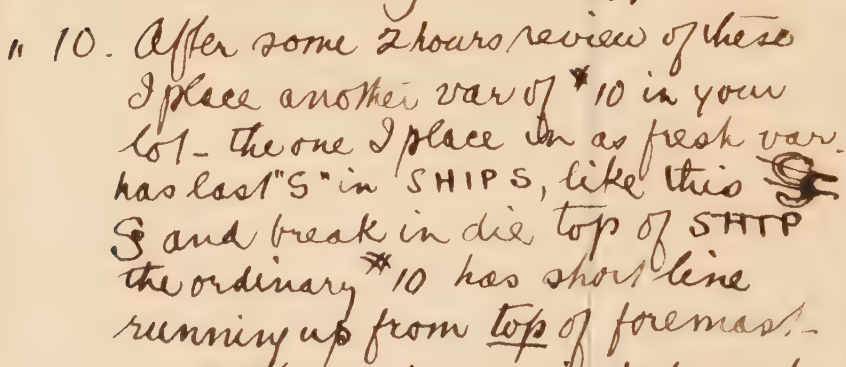 " 10. After some 2 hours review of these
I place another var of #10 in your
lot - the one I place in as fresh var.
has last "S" in SHIPS, like this
S and break in die top of SHIP
the ordinary #10 has short line
running up from top of foremast -